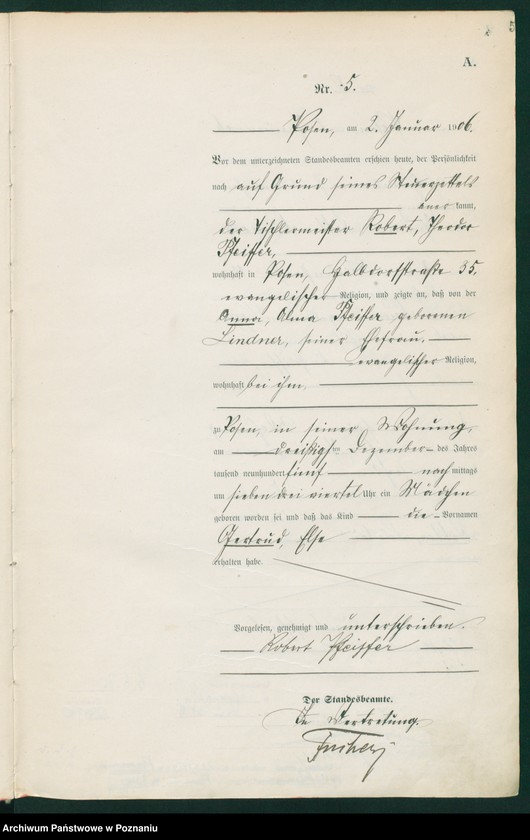 A.
Nr. 5.
Posen, am 2. Januar 1906.
Vor dem unterzeichneten Standesbeamten erschien heute, der Persönlichkeit
nach auf Grund seines Steuerzettels
aner kannt,
der Tischlermeister Robert, Theodor
Pfeiffer,
wohnhaft in Posen, Halbdorfstraße 35,
evangelischer Religion, und zeigte an, daß von der
Anna, Alma Pfeiffer geborenen
Lindner, seiner Ehefrau,
evangelischer Religion,
wohnhaft bei ihm,
zu Posen, in seiner Wohnung,
am dreißigsten Dezember des Jahres
tausend neunhundert fünf nach mittags
um sieben drei viertel Uhr ein Mädchen
geboren worden sei und daß das Kind die Vornamen
Gertrud, Else
erhalten habe.
Vorgelesen, genehmigt und unterschrieben.
Robert Pfeiffer
Der Standesbeamte.
In Vertretung.
Archiwum Państwowe w Poznaniu